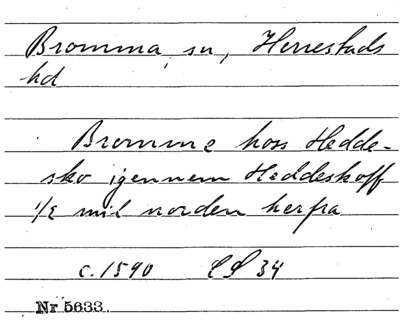 Bromma sn, Herrestads
hd
Bromme hoss Hedde-
sko igennem Heddeskoff
1/2 mil norden herfra
c. 1590 LP 34
Nr 5633.